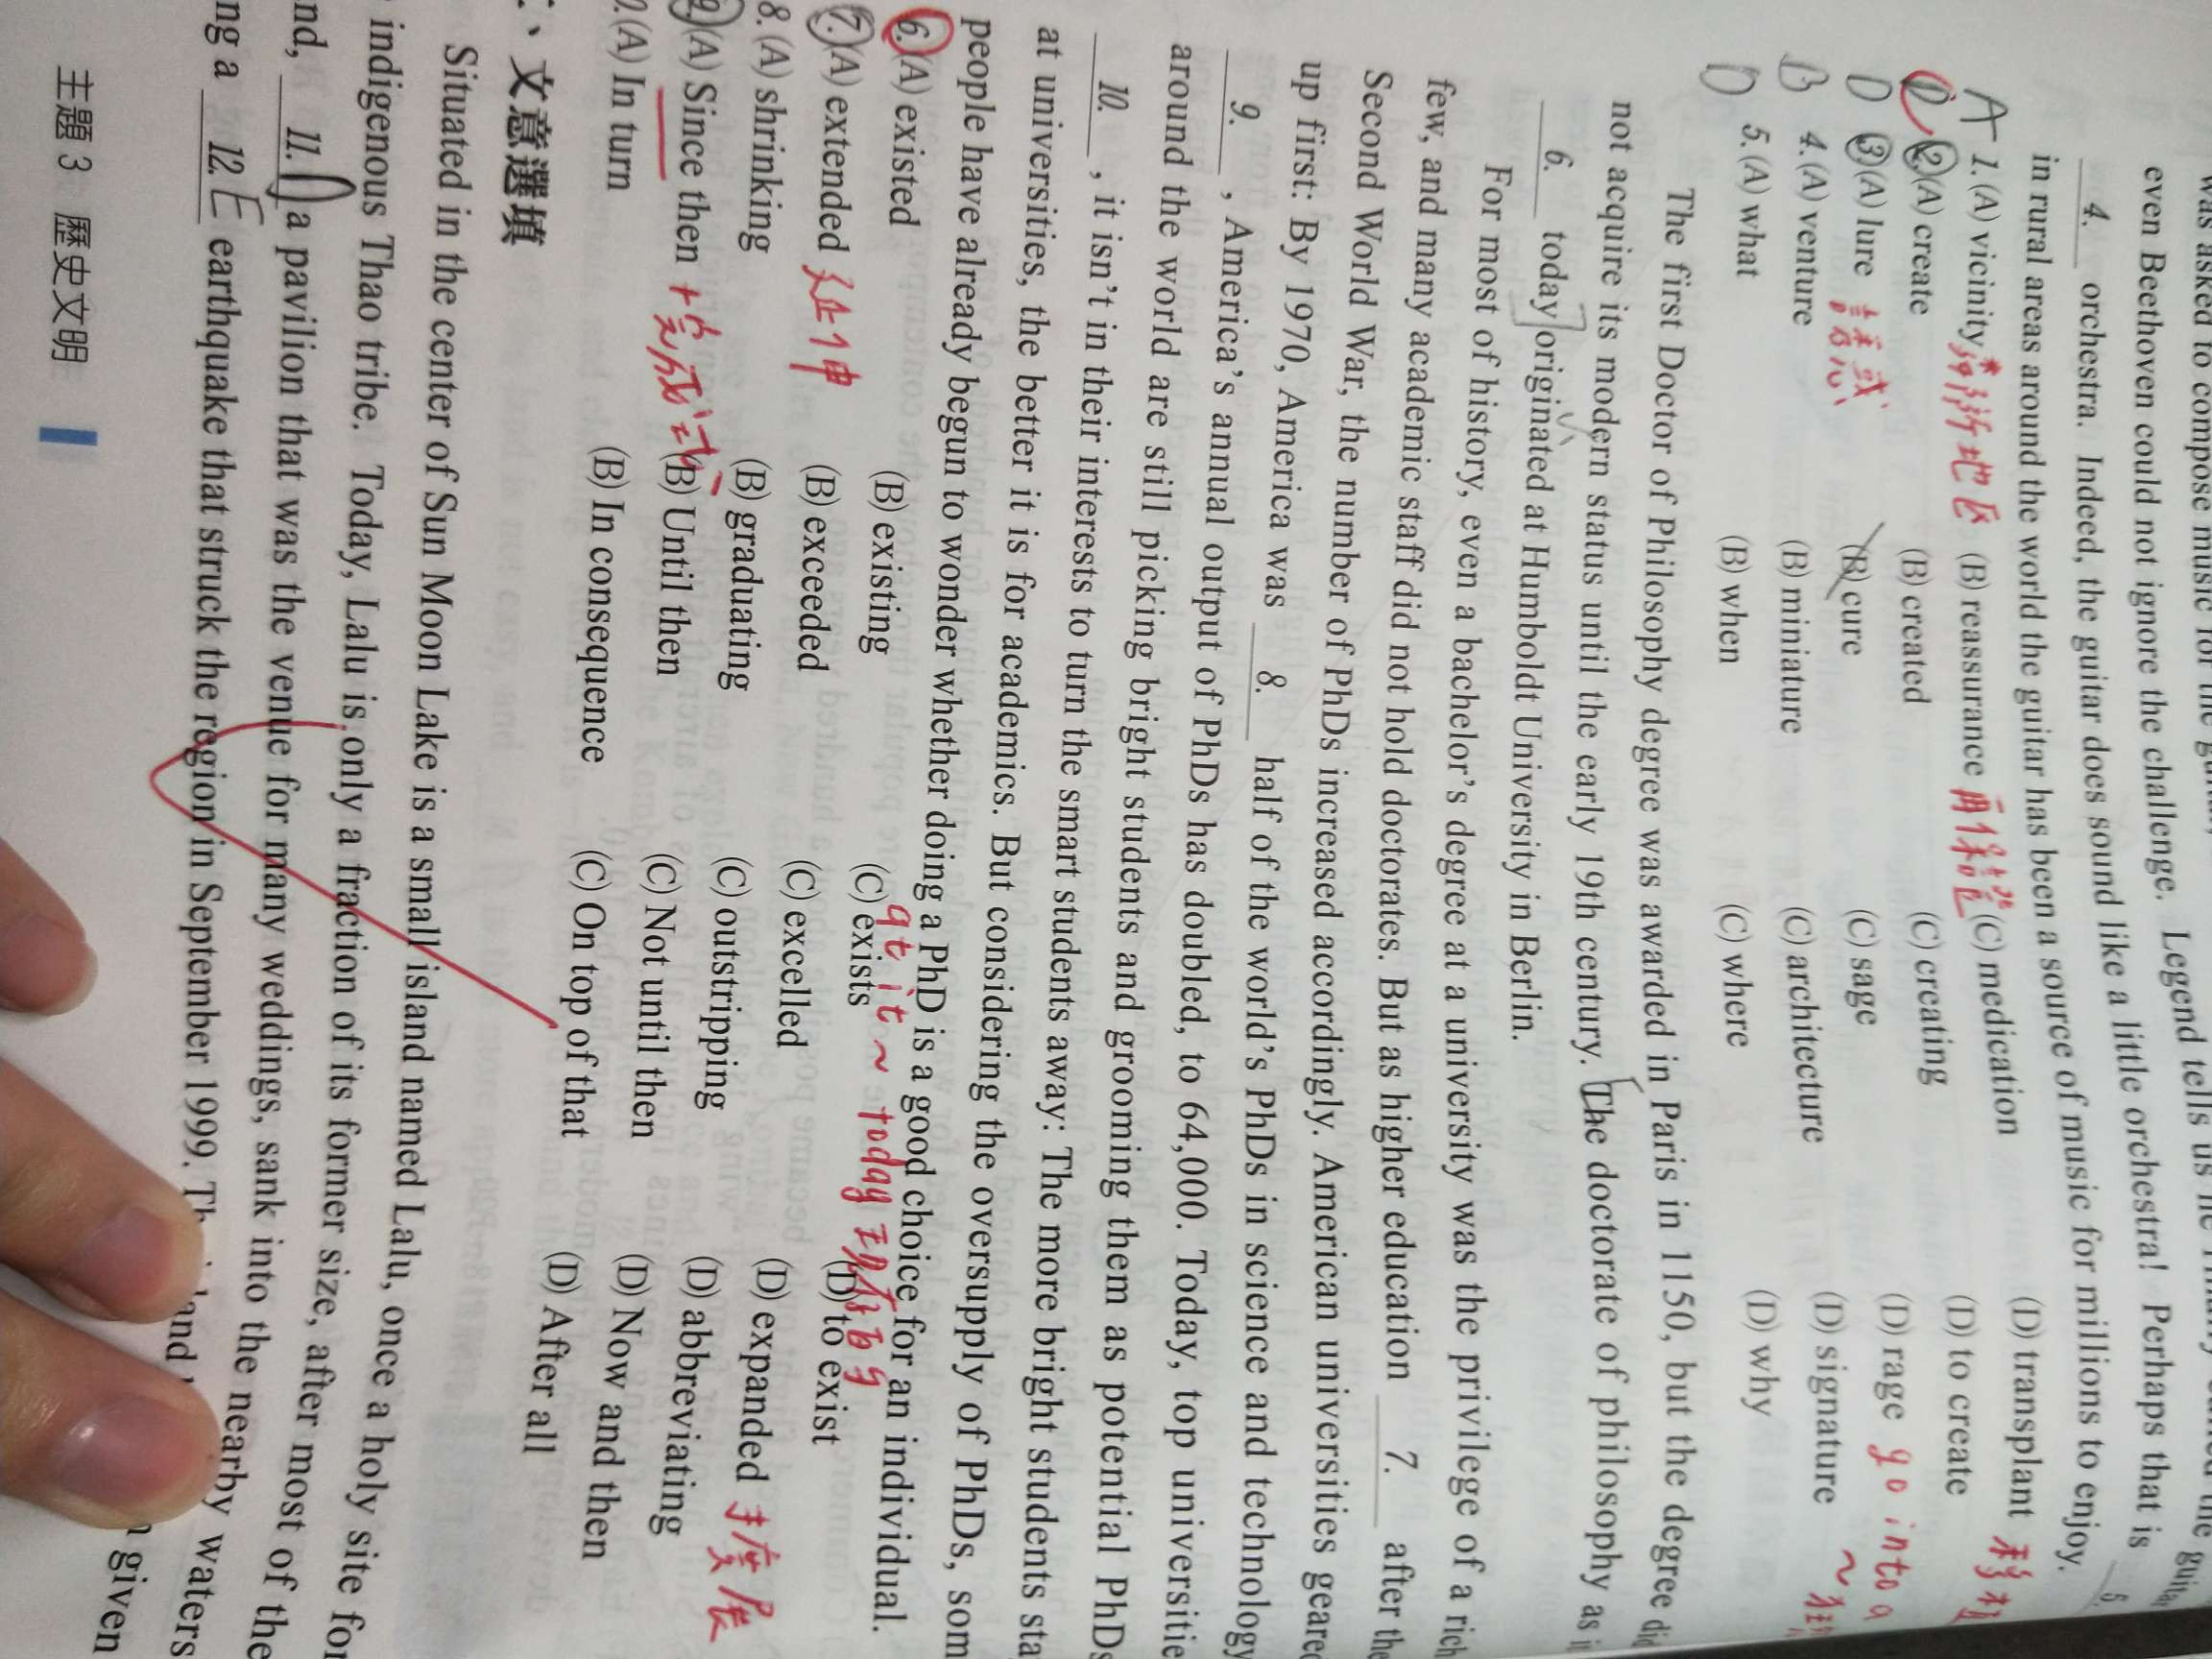 was asked to compose music for the
even Beethoven could not ignore the challenge. Legend tells us
4. orchestra. Indeed, the guitar does sound like a little orchestra! Perhaps that is 5.
in rural areas around the world the guitar has been a source of music for millions to enjoy.
A 1. (A) vicinity *鄰近地區 (B) reassurance 再保證 (C) medication (D) transplant 移植
2. (A) create (B) created (C) creating (D) to create
D 3. (A) lure 誘惑 (B) cure (C) sage (D) rage go into a ~
B 4. (A) venture (B) miniature (C) architecture (D) signature
D 5. (A) what (B) when (C) where (D) why
The first Doctor of Philosophy degree was awarded in Paris in 1150, but the degree did
not acquire its modern status until the early 19th century. The doctorate of philosophy as it
6. today originated at Humboldt University in Berlin.
For most of history, even a bachelor's degree at a university was the privilege of a rich
few, and many academic staff did not hold doctorates. But as higher education 7. after the
Second World War, the number of PhDs increased accordingly. American universities geared
up first: By 1970, America was 8. half of the world's PhDs in science and technology
9. , America's annual output of PhDs has doubled, to 64,000. Today, top universitie
around the world are still picking bright students and grooming them as potential PhDs
10. , it isn't in their interests to turn the smart students away: The more bright students sta
at universities, the better it is for academics. But considering the oversupply of PhDs, som
people have already begun to wonder whether doing a PhD is a good choice for an individual.
it ~ today 現存的
6. (A) existed (B) existing (C) exists (D) to exist
7. (A) extended 延伸 (B) exceeded (C) excelled (D) expanded 擴展
8. (A) shrinking (B) graduating (C) outstripping (D) abbreviating
9. (A) Since then +完成式 (B) Until then (C) Not until then (D) Now and then
(A) In turn (B) In consequence (C) On top of that (D) After all
、文意選填
Situated in the center of Sun Moon Lake is a small island named Lalu, once a holy site for
indigenous Thao tribe. Today, Lalu is only a fraction of its former size, after most of the
nd, 11. a pavilion that was the venue for many weddings, sank into the nearby waters
ng a 12. E earthquake that struck the region in September 1999. given
主題 3 歷史文明